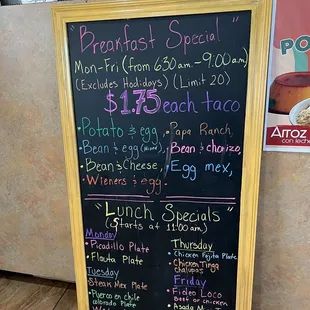 "Breakfast Special"
Mon-Fri (from 630am - 9:00am)
(Excludes Hodidays) (Limit 20)
$1.75 each taco
• Potato & egg
• Bean & egg (mixed)
• Bean & Cheese,
• Wieners & egg
• Papa Ranch,
• Bean & chorizo,
• Egg mex,
"Lunch Specials"
(Starts at 11:00am)
Monday
• Picadillo Plate
• Flauta Plate
Tuesday
• Steak Mex Plate
• Puerco en chile
colorado Plate
Thursday
• Chicken Fajita Plate
• Chicken Tinga
chalupas
Friday
• Fideo Loco
Beef or chicken
PO
Arroz
con leche